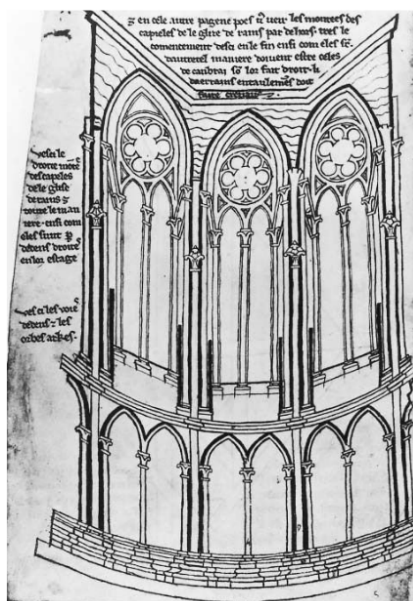 ⁊ en cele autre pagene poes vꝰ veir les montees des
capieles de le glize de rains par dehors. tres le
comencement desci en le fin ensi com eles sūt.
dautretel maniere doivent estre celes
de canbrai sō lor fait droit. li
daerrains entaulemēs doit
faire cretiaus.
vesci le
droite mōtee
des capeles
de le glise
de rains ⁊
toute le man
iere. ensi com
eles sunt ꝑ
dedens droites
en lor estage
vesci les voies
dedens ⁊ les
orbes arkes.